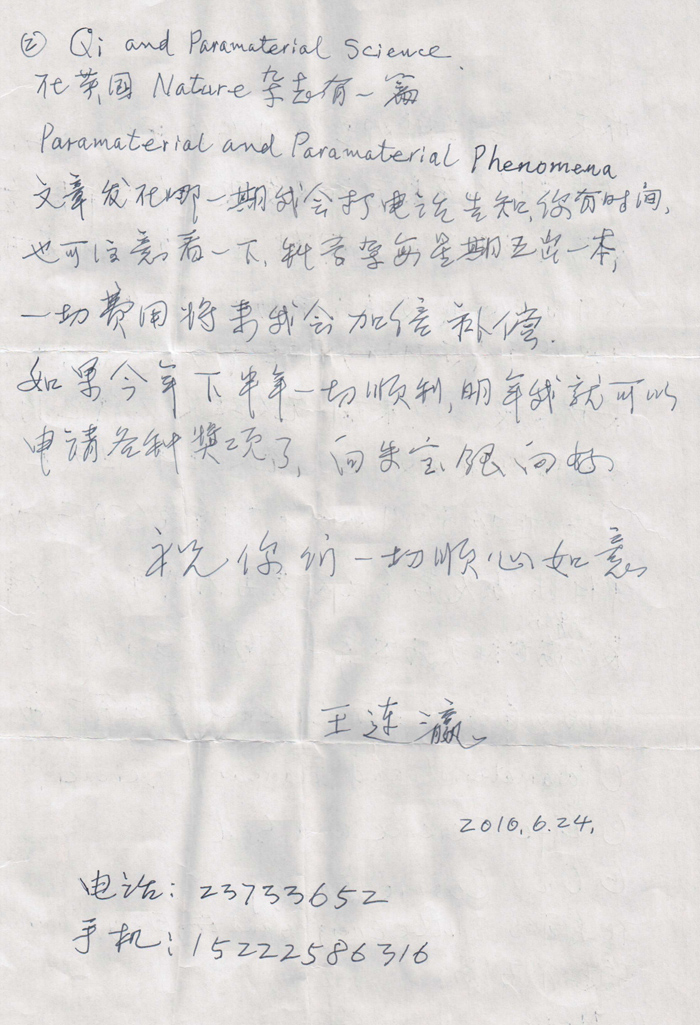 ② Qi and Paramaterial Science.
在英国 Nature 杂志有一篇
Paramaterial and Paramaterial Phenomena
文章发在哪一期我会打电话告知,你有时间,
也可注意看一下,科学每星期五出一本,
一切费用将来我会加倍补偿.
如果今年下半年一切顺利,明年我就可以
申请各种奖项了,向朱宝银问好
祝你们一切顺心如意
王连瀛
2010.6.24.
电话:23733652
手机:15222586316